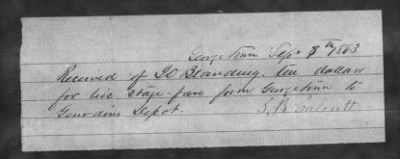 Georgetown Sept 8th 1863
Received of J O Blanding ten dollars
for his stage fare from Georgetown to
Gourdins Depot. S. B.